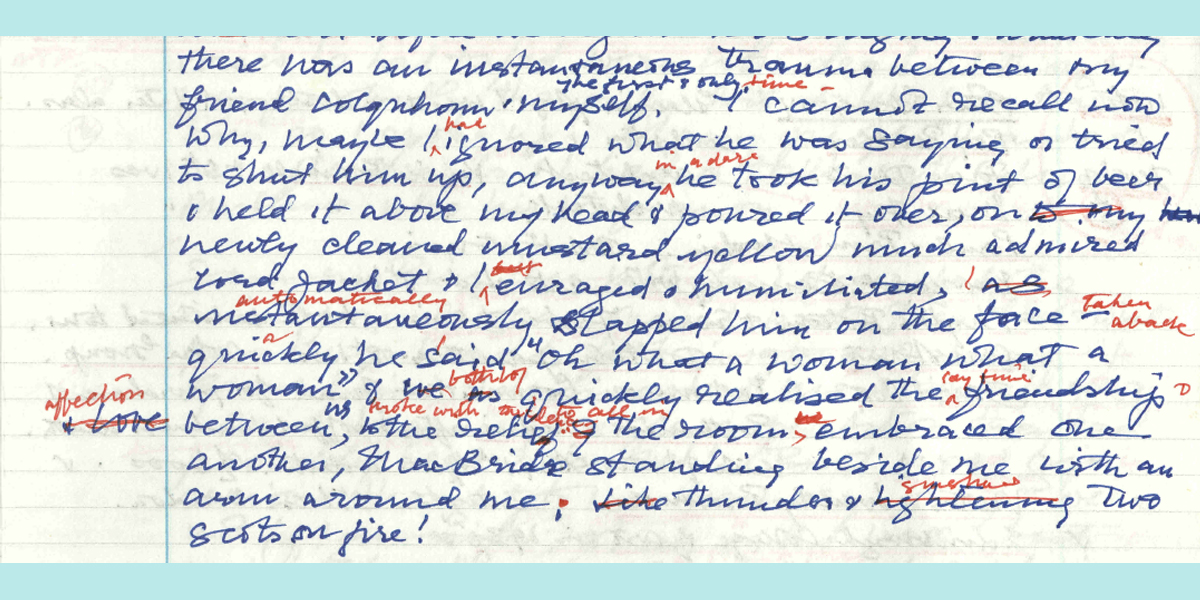 there was an instantaneous trauma between my
the first & only time
friend Colquhoun & myself. I cannot recall now
had
why, maybe I ignored what he was saying or tried
in a daze
to shut him up, anyway he took his pint of beer
& held it above my head & poured it over, on my
newly cleaned mustard yellow much admired
cord jacket & I enraged & humiliated,
automatically
instantaneously slapped him on the face – taken aback
quickly he said "Oh what a woman what a
both of
woman" & we quickly realised the friendship
affection
& love between us, to the relief of the room, embraced one
another, MacBride standing beside me with an
arm around me; like thunder & lightening Two
sunshine
Scots on fire!